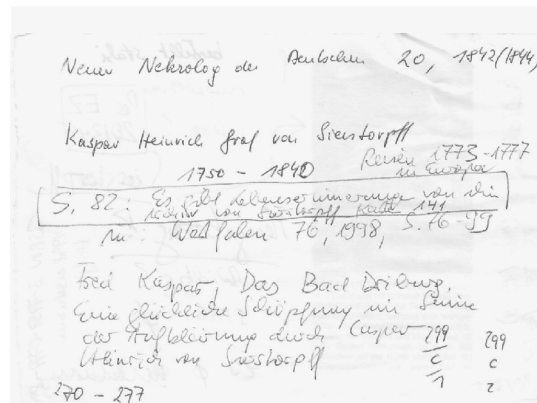 Neuer Nekrolog der Deutschen 20, 1842 (1844)
Kaspar Heinrich Graf von Sierstorpff
1750 - 1842
Reisen 1773-1777
in Europa
S. 82: Es gibt Lebenserinnerungen von ihm
von Sierstorpff 141
in Westfalen 76, 1998, S. 76-99
Fred Kaspar, Das Bad Driburg.
Eine glückliche Schöpfung im Sinne
der Aufklärung durch Caspar
Heinrich von Sierstorpff
299 299
c c
1 2
270 - 277